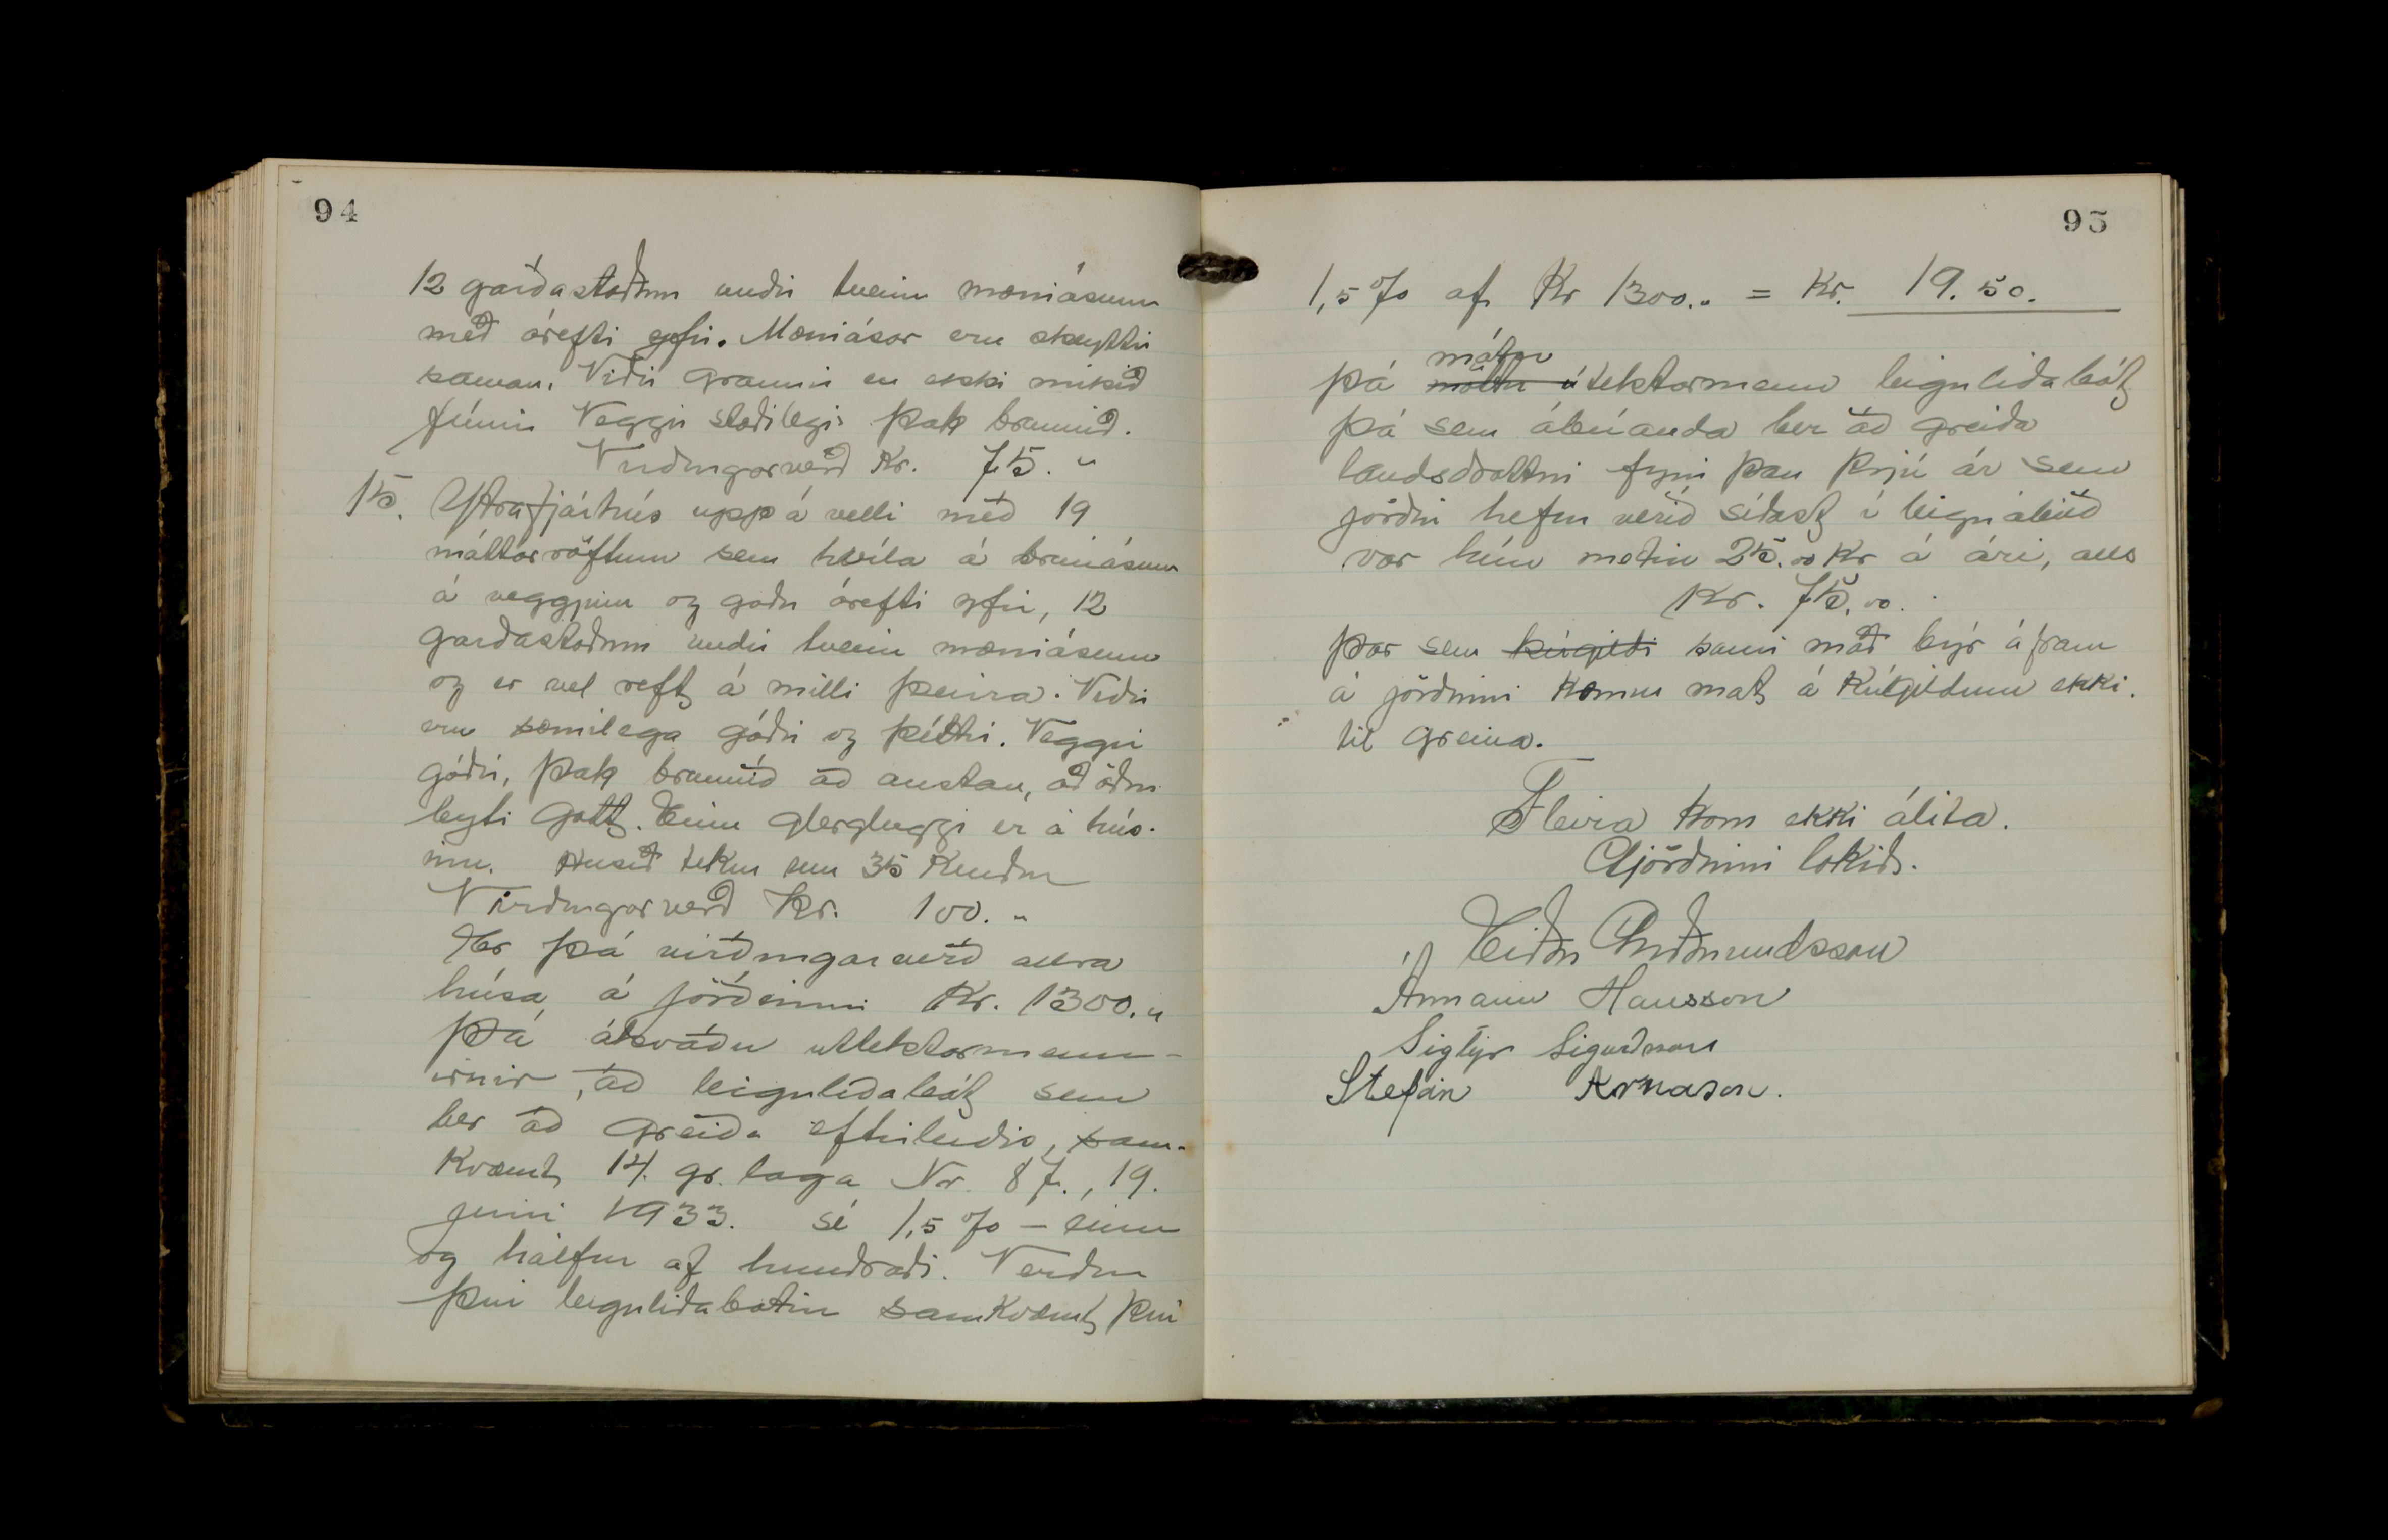 94
12 garðastoðum undir tveim mæniásum
með árefti yfir. Mæniásar eru skeyttir
saman. Viðir grannir en ekki mikið
fúnir Veggir stæðilegir Þak brunnið.
Virðingarverð Kr. 75. "
15. Ytra fjárhús uppá velli með 19
máttarröftum sem hvíla á brúnásum
á veggjum og góðu árefti yfir, 12
garðastoðum undir tveim mæniásum
og er vel reft á milli þeirra. Viðir
eru sæmilega góðir og þéttir. Veggir
góðir, Þak brunnið að austan, að öðru
leyti gott. Einn glergluggi er á hús-
inu. Húsið tekur um 35 Kindur
Virðingarverð Kr. 100. "
Er þá virðingarverð allra
húsa á jörðinni Kr. 1300. "
Þá ákváðu úttektarmenn-
irnir, að leiguliðabót sem
ber að greiða eftirleiðis, sam-
kvæmt 14. gr. laga Nr. 87., 19.
júní 1933. sé 1,5 % — einn
og hálfur af hundraði. Verður
því leiguliðabótin samkvæmt því
95
1,5 % af Kr 1300. " = Kr. 19.50.
mátu
Þá mátu útektarmenn leiguliðabót
þá sem ábúanda ber að greiða
landsdrottni fyrir þau þrjú ár sem
jörðin hefur verið síðast í leiguábúð
var hún metin 25.00 Kr á ári, alls
Kr. 75.00.
Þar sem kúgildi sami maður býr áfram
á jörðinni kemur mat á Kúgildum ekki
til greina.
Fleira kom ekki álita.
Gjörðinni lokið.
Eiður Guðmundsson
Ármann Hansson
Sigtýr Sigurðsson
Stefán Árnason.